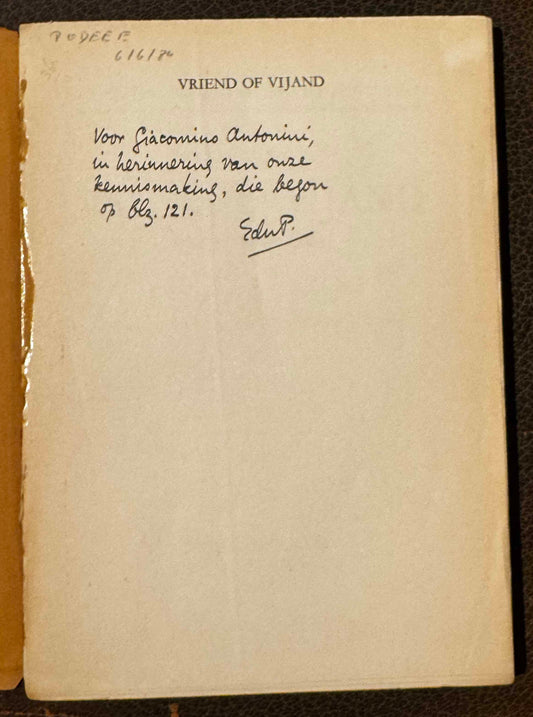 6/6/84
VRIEND OF VIJAND
Voor Giacomino Antonini,
in herinnering van onze
kennismaking, die begon
op blz. 121.
EduP.